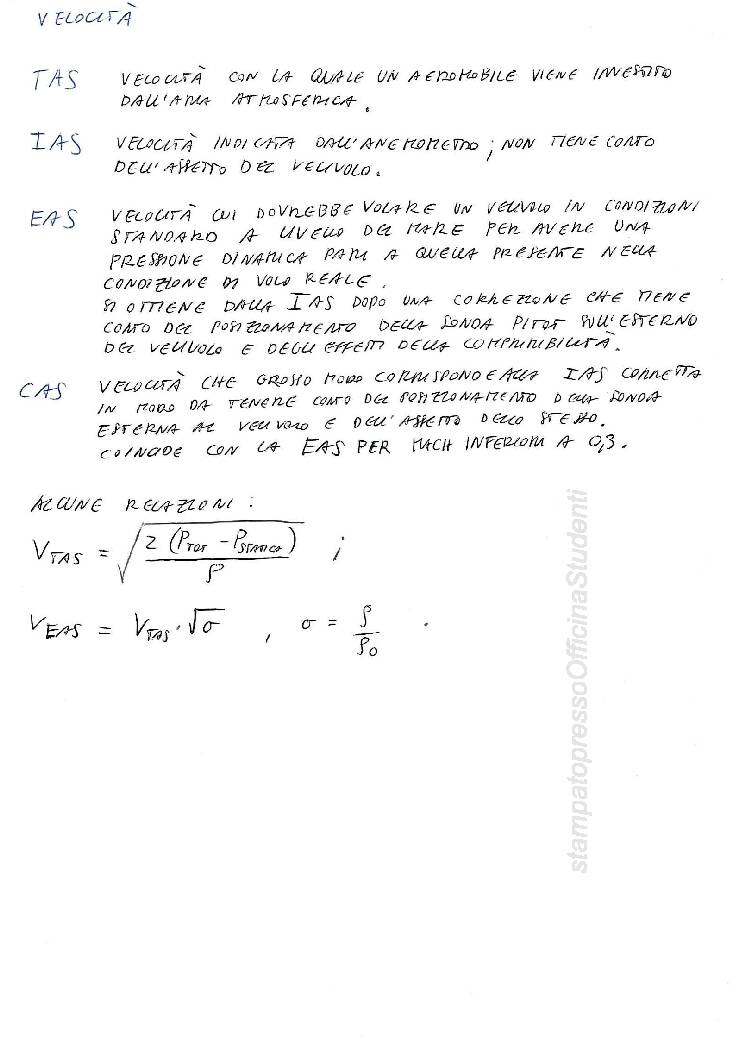 VELOCITÀ
TAS VELOCITÀ CON LA QUALE UN AEROMOBILE VIENE INVESTITO
DALL'ARIA ATMOSFERICA.
IAS VELOCITÀ INDICATA DALL'ANEMOMETRO; NON TIENE CONTO
DELL'ASSETTO DEL VELIVOLO.
EAS VELOCITÀ CUI DOVREBBE VOLARE UN VELIVOLO IN CONDIZIONI
STANDARD A LIVELLO DEL MARE PER AVERE UNA
PRESSIONE DINAMICA PARI A QUELLA PRESENTE NELLA
CONDIZIONE DI VOLO REALE.
SI OTTIENE DALLA IAS DOPO UNA CORREZIONE CHE TIENE
CONTO DEL POSIZIONAMENTO DELLA SONDA PITOT SULL'ESTERNO
DEL VELIVOLO E DEGLI EFFETTI DELLA COMPRIMIBILITÀ.
CAS VELOCITÀ CHE GROSSO MODO CORRISPONDE ALLA IAS CORRETTA
IN MODO DA TENERE CONTO DEL POSIZIONAMENTO DELLA SONDA
ESTERNA AL VELIVOLO E DELL'ASSETTO DELLO STESSO.
COINCIDE CON LA EAS PER MACH INFERIORI A 0,3.
ALCUNE RELAZIONI:
V_TAS = √(2 (P_TOT - P_STATICA) / ρ) ;
V_EAS = V_TAS · √σ , σ = ρ/ρ_0 .
stampatopressoOfficinaStudenti